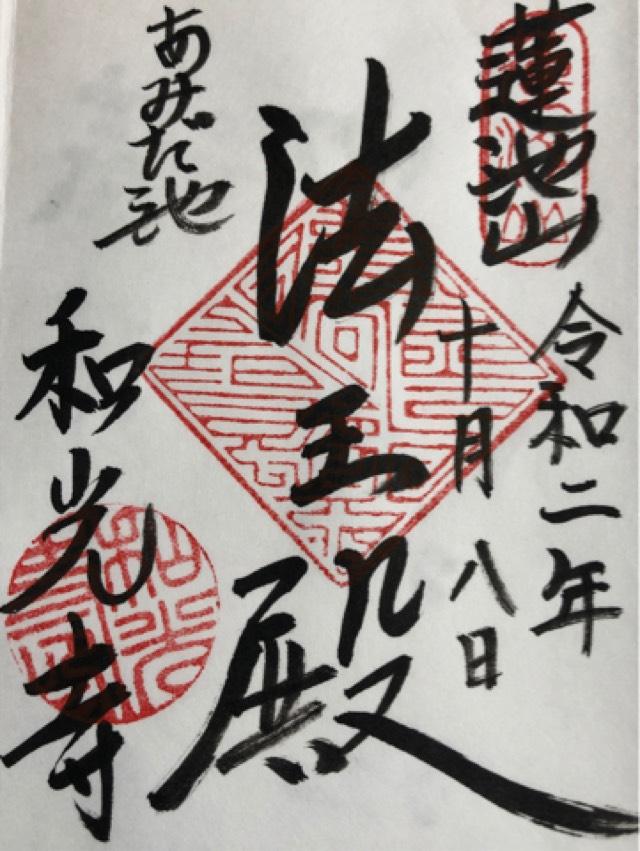 蓮池山
令和二年
十月八日
法王殿
あみだ池
和光寺